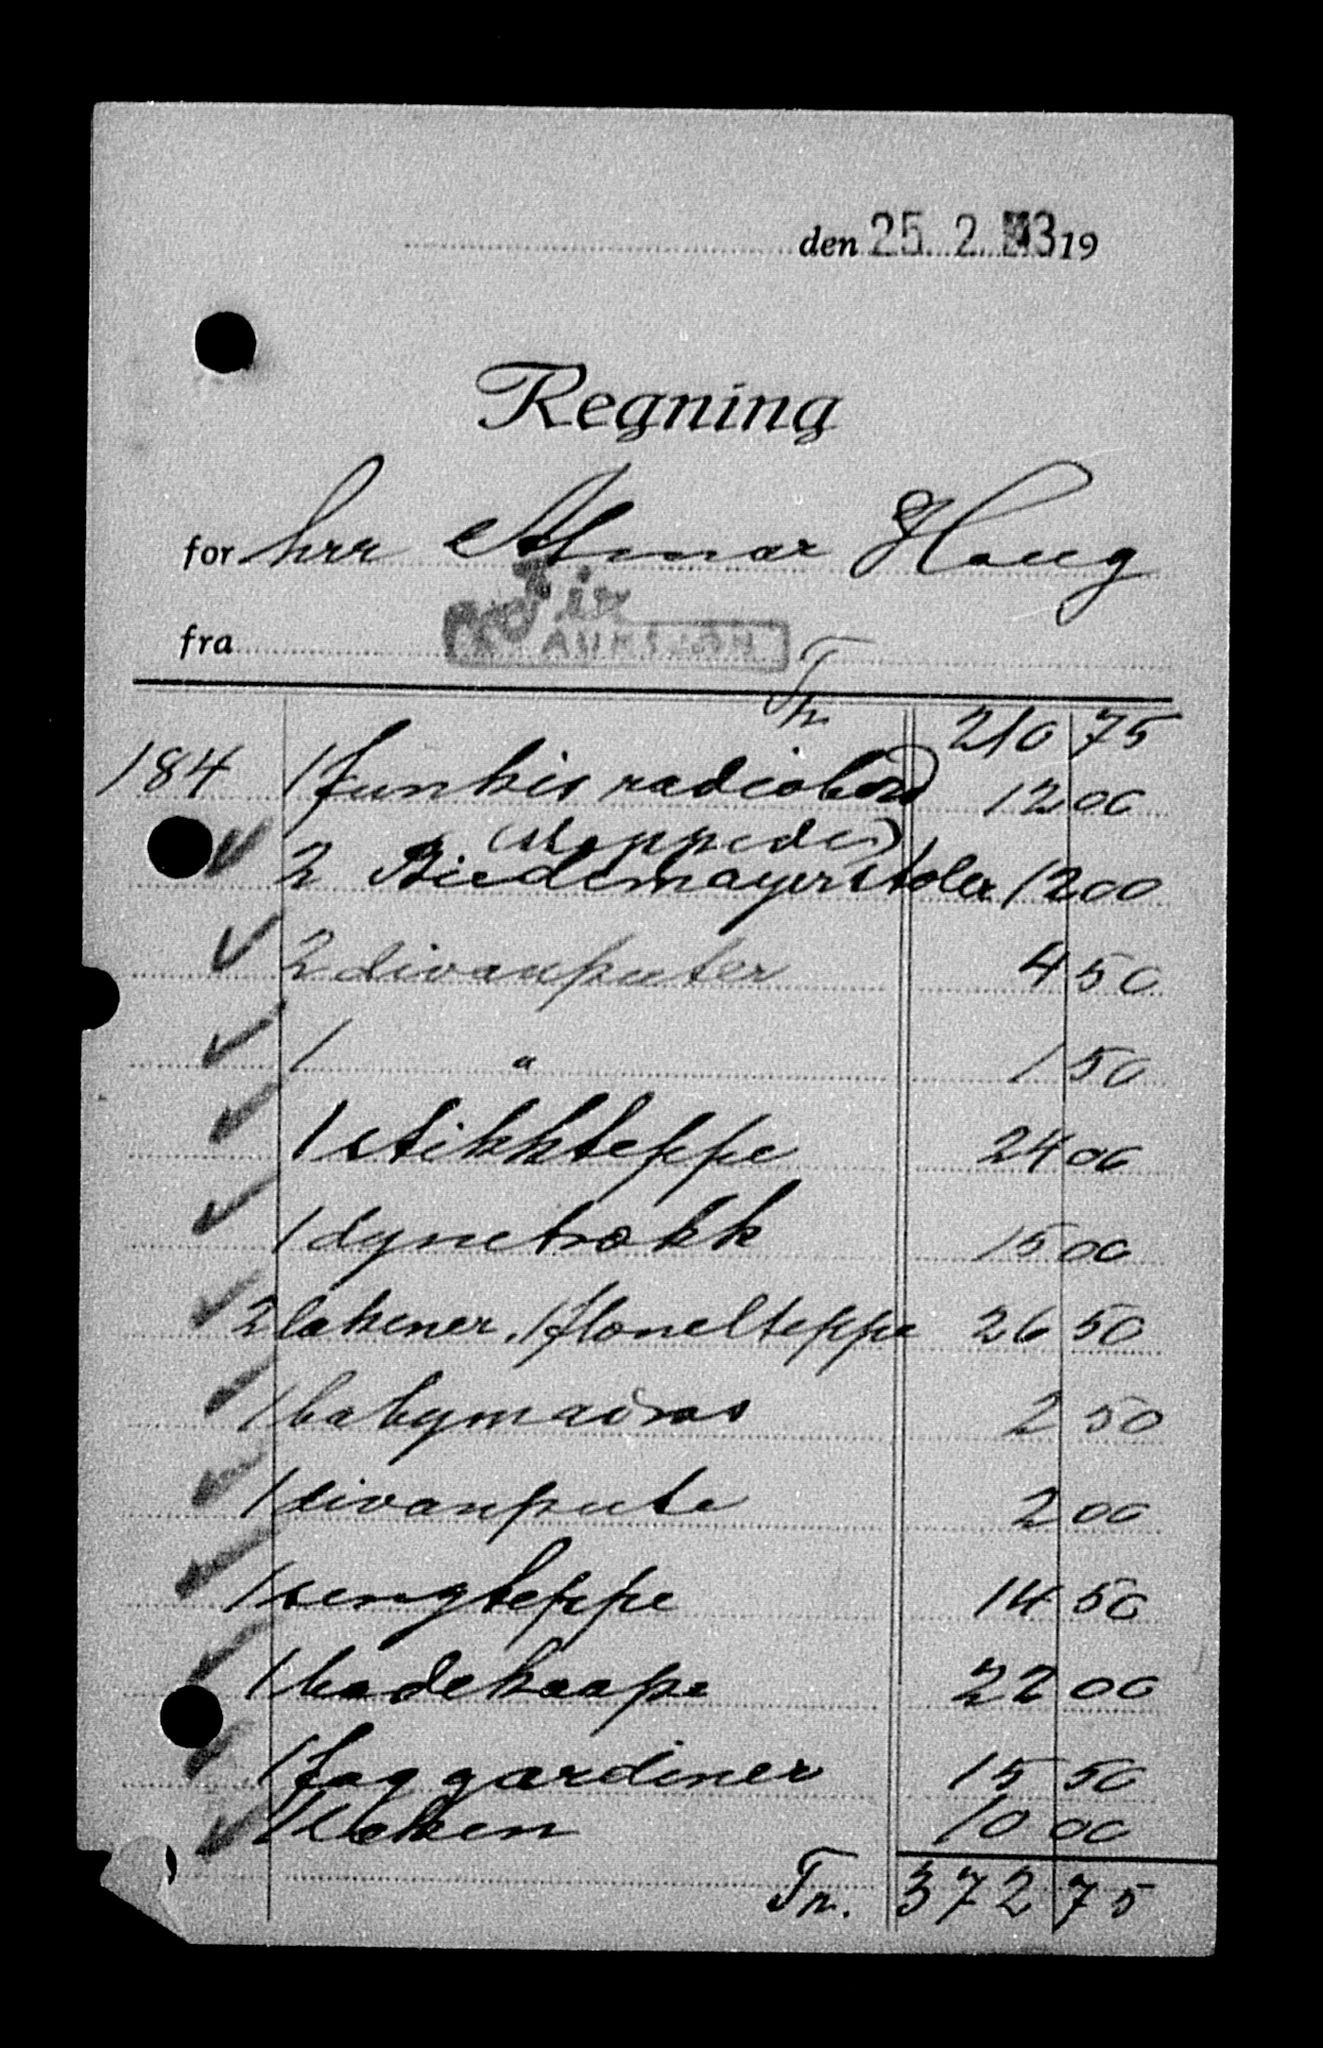 den 25. 2. 43 19
Regning
for hrr Almar Haug
fra AUKSJON
Tr. 210 75
184 1 funkis radiobord 12 00
(stoppede)
✓ 2 Biedemayerstoler 12 00
✓ 2 divanputer 4 50
✓ 1 " 1 50
✓ 1 stikkteppe 24 00
✓ 1 dynetrekk 15 00
✓ 2 lakener, 1 flonelteppe 26 50
✓ 1 babymadras 2 50
✓ 1 divanpute 2 00
✓ 1 sengteppe 14 50
✓ 1 badekaape 22 00
✓ 1 fag gardiner 15 50
✓ 1 laken 10 00
Tr. 372 75